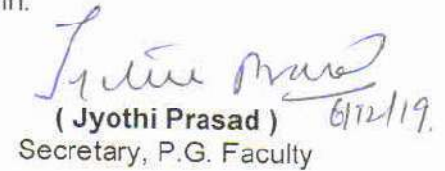 in.
Jyothi Prasad
( Jyothi Prasad ) 6/12/19.
Secretary, P.G. Faculty